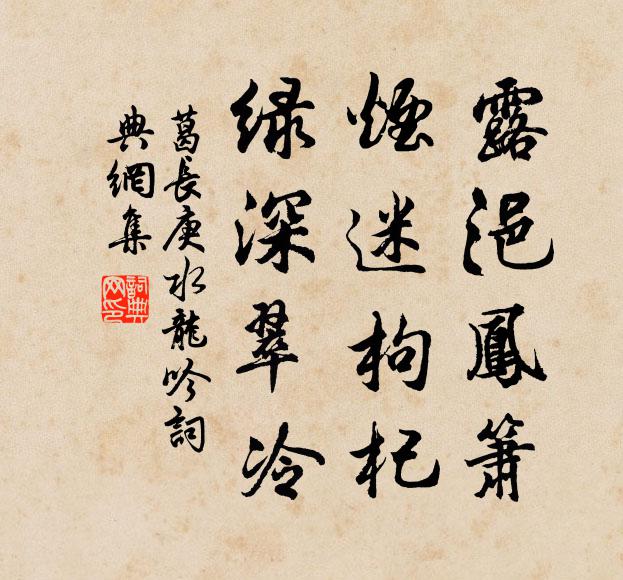 露浥鳳簫
煙迷枸杞
緑深翠冷
葛長庚水龍吟詞
典網集
詞典網印